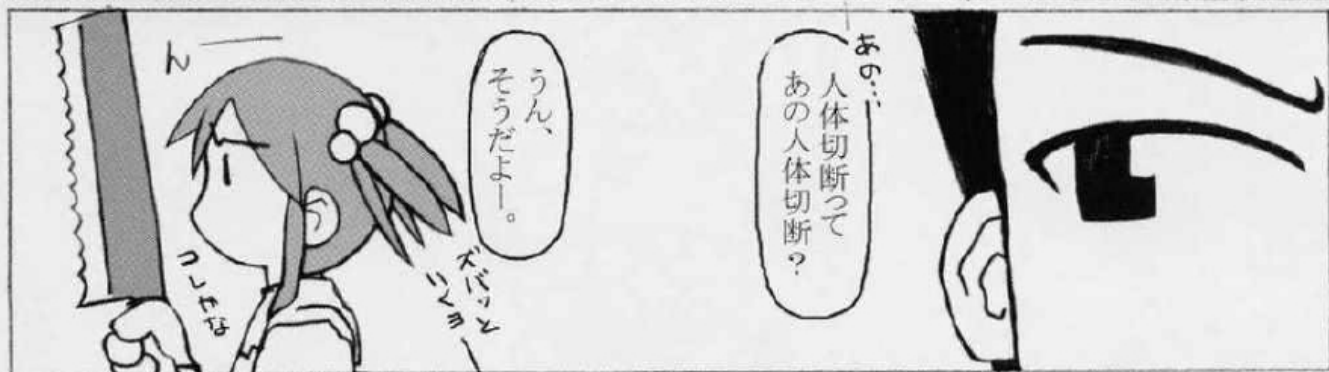 あの…
人体切断って
あの人体切断？
うん、
そうだよー。
ズバッと
いくヨー
んー
コレかな